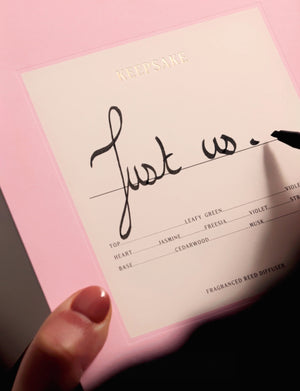 KEEPSAKE
Just us.
TOP LEAFY GREEN VIOLE
HEART JASMINE FREESIA VIOLET STR
BASE CEDARWOOD MUSK
FRAGRANCED REED DIFFUSER